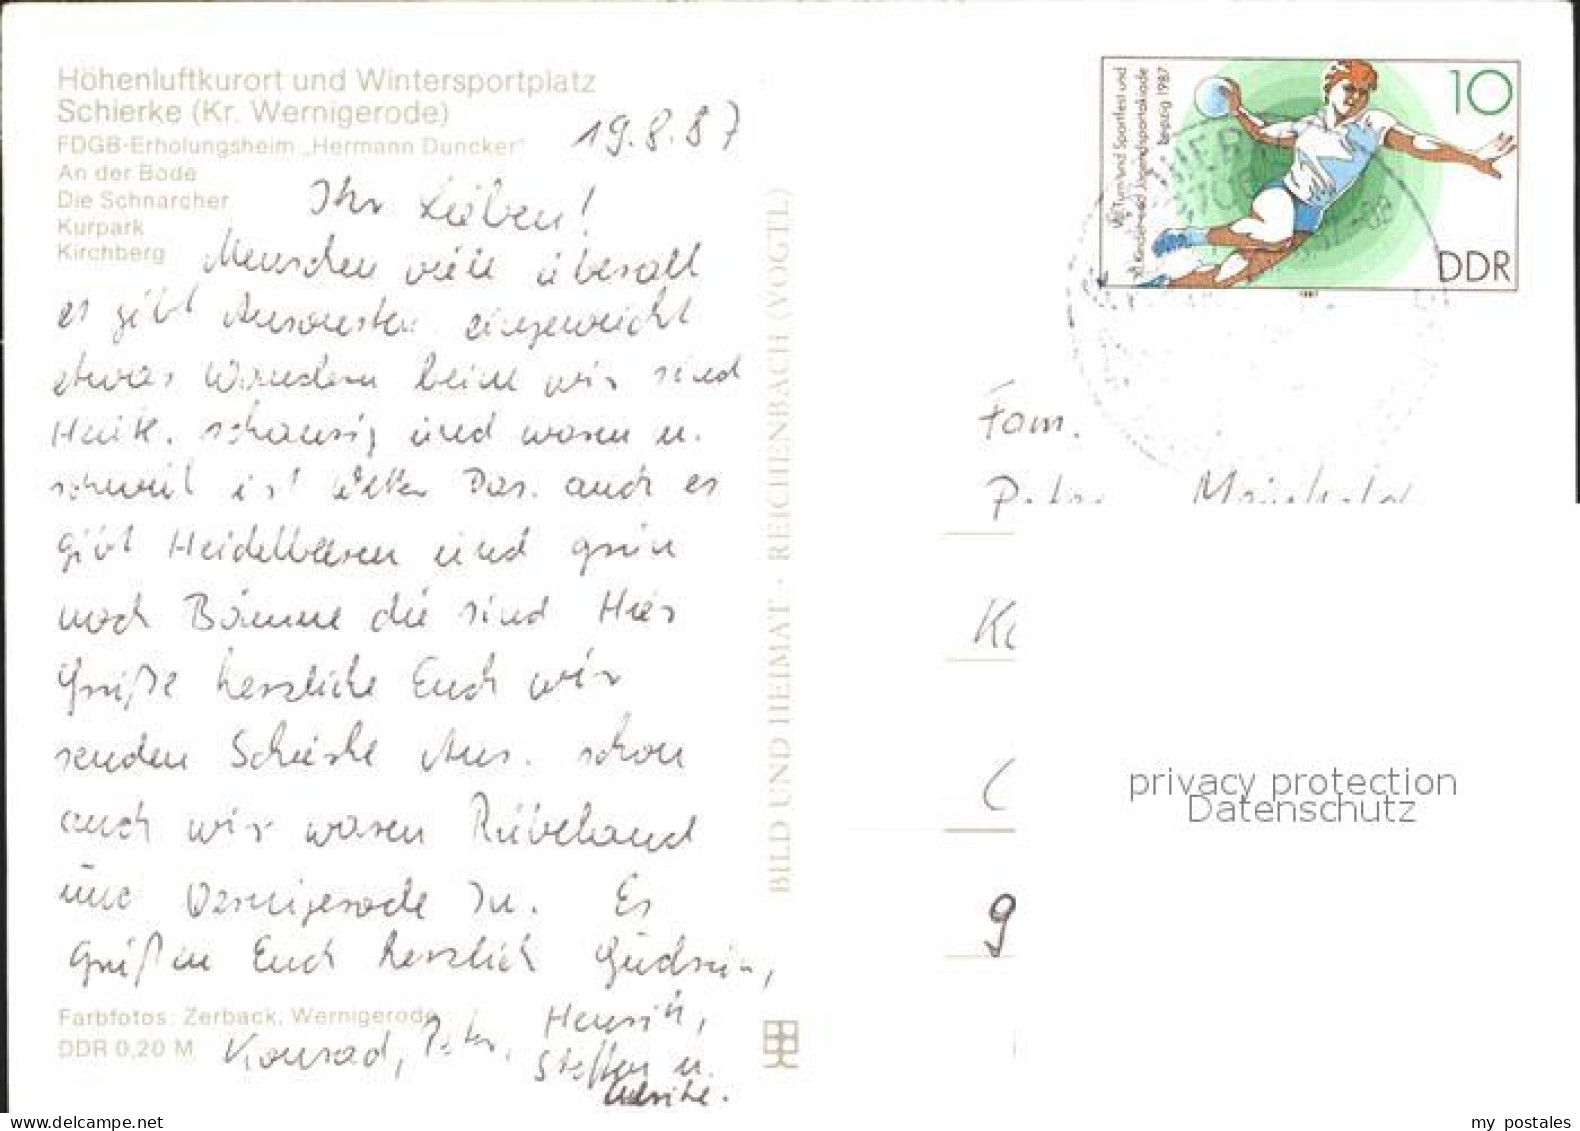 Höhenluftkurort und Wintersportplatz
Schierke (Kr. Wernigerode)
FDGB-Erholungsheim „Hermann Duncker"
An der Bode
Die Schnarcher
Kurpark
Kirchberg
19.8.87
Ihr Lieben!
Menschen viele überall
es gibt eingeweicht
etwas Wandern beim wir sind
Heute. schaurig und waren u.
ist Das. auch es
gibt Heidelbeeren und grün
noch Bäume die sind Hier
Grüße herzliche Euch wir
senden Schierke Aus. schon
auch wir waren Rübeland
und Wernigerode In. Es
grüßen Euch herzlich Gudrun,
Henrik,
Konrad, Peter, Steffen u.
Ulrike.
Farbfotos: Zerback, Wernigerode
DDR 0,20 M
BILD UND HEIMAT · REICHENBACH (VOGTL)
VIII. Turn- und Sportfest und
XI. Kinder- und Jugendspartakiade
Leipzig 1987
10
DDR
1987
Fam.
Peter
K
C
9
privacy protection
Datenschutz
my postales